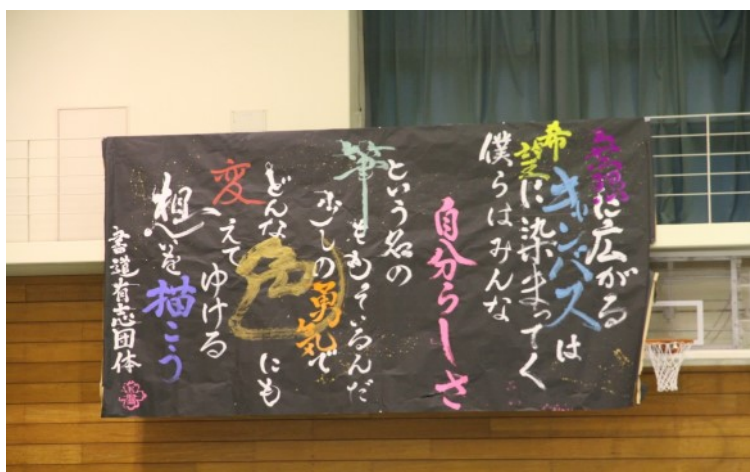 無限に広がる
キャンバスは
希望に染まってく
僕らはみんな
自分らしさ
という名の
筆をもっているんだ
少しの勇気で
どんな色にも
変えてゆける
想いを描こう
書道有志団体